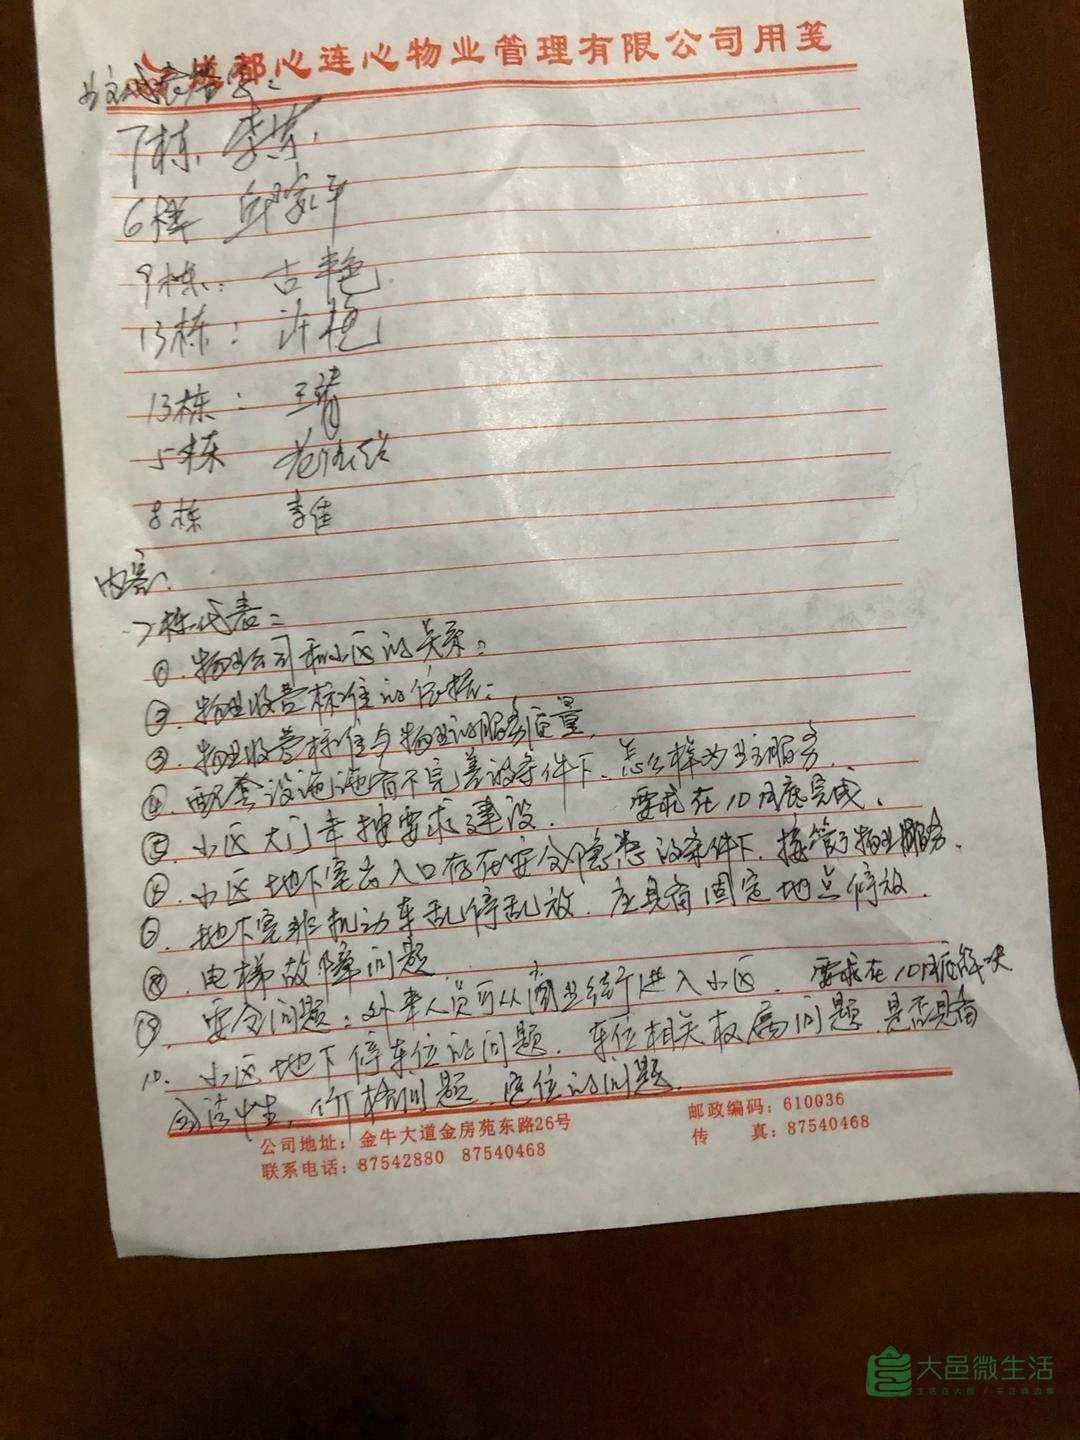 都心连心物业管理有限公司用笺
7栋
6栋
9栋: 古艳
13栋: 许艳
13栋: 王清
5栋
8栋 李佳
内容:
7栋代表:
①. 物业公司和小区的关系:
②. 物业收费标准的依据:
③. 物业收费标准与物业的服务质量,
④. 配套设施不完善的条件下, 怎么样为业主服务.
⑤. 小区大门车 要求建设. 要求在10月底完成.
⑥. 小区地下室出入口存在安全隐患的条件下. 接管了物业服务.
⑦. 地下室非机动车乱停乱放. 应具备固定地点停放.
⑧. 电梯故障问题.
⑨. 安全问题: 外来人员可从商业街进入小区. 要求在10月底解决
10. 小区地下停车位的问题. 车位相关权属问题. 是否具备
合法性. 价格问题. 车位的问题.
公司地址: 金牛大道金房苑东路26号 邮政编码: 610036
联系电话: 87542880 87540468 传 真: 87540468
大邑微生活